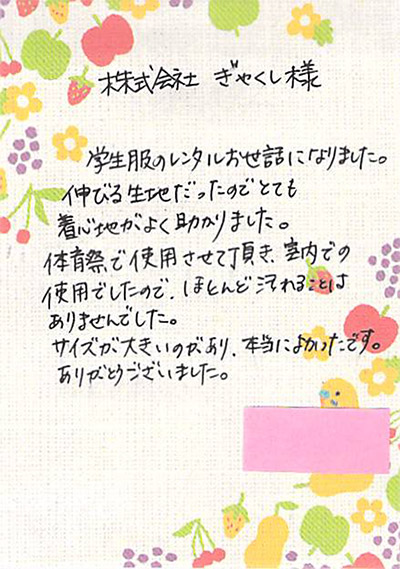 株式会社 ぎゃくし様
学生服のレンタルお世話になりました。
伸びる生地だったのでとても
着心地がよく助かりました。
体育祭で使用させて頂き、室内での
使用でしたので、ほとんど汚れることは
ありませんでした。
サイズが大きいのがあり、本当によかったです。
ありがとうございました。